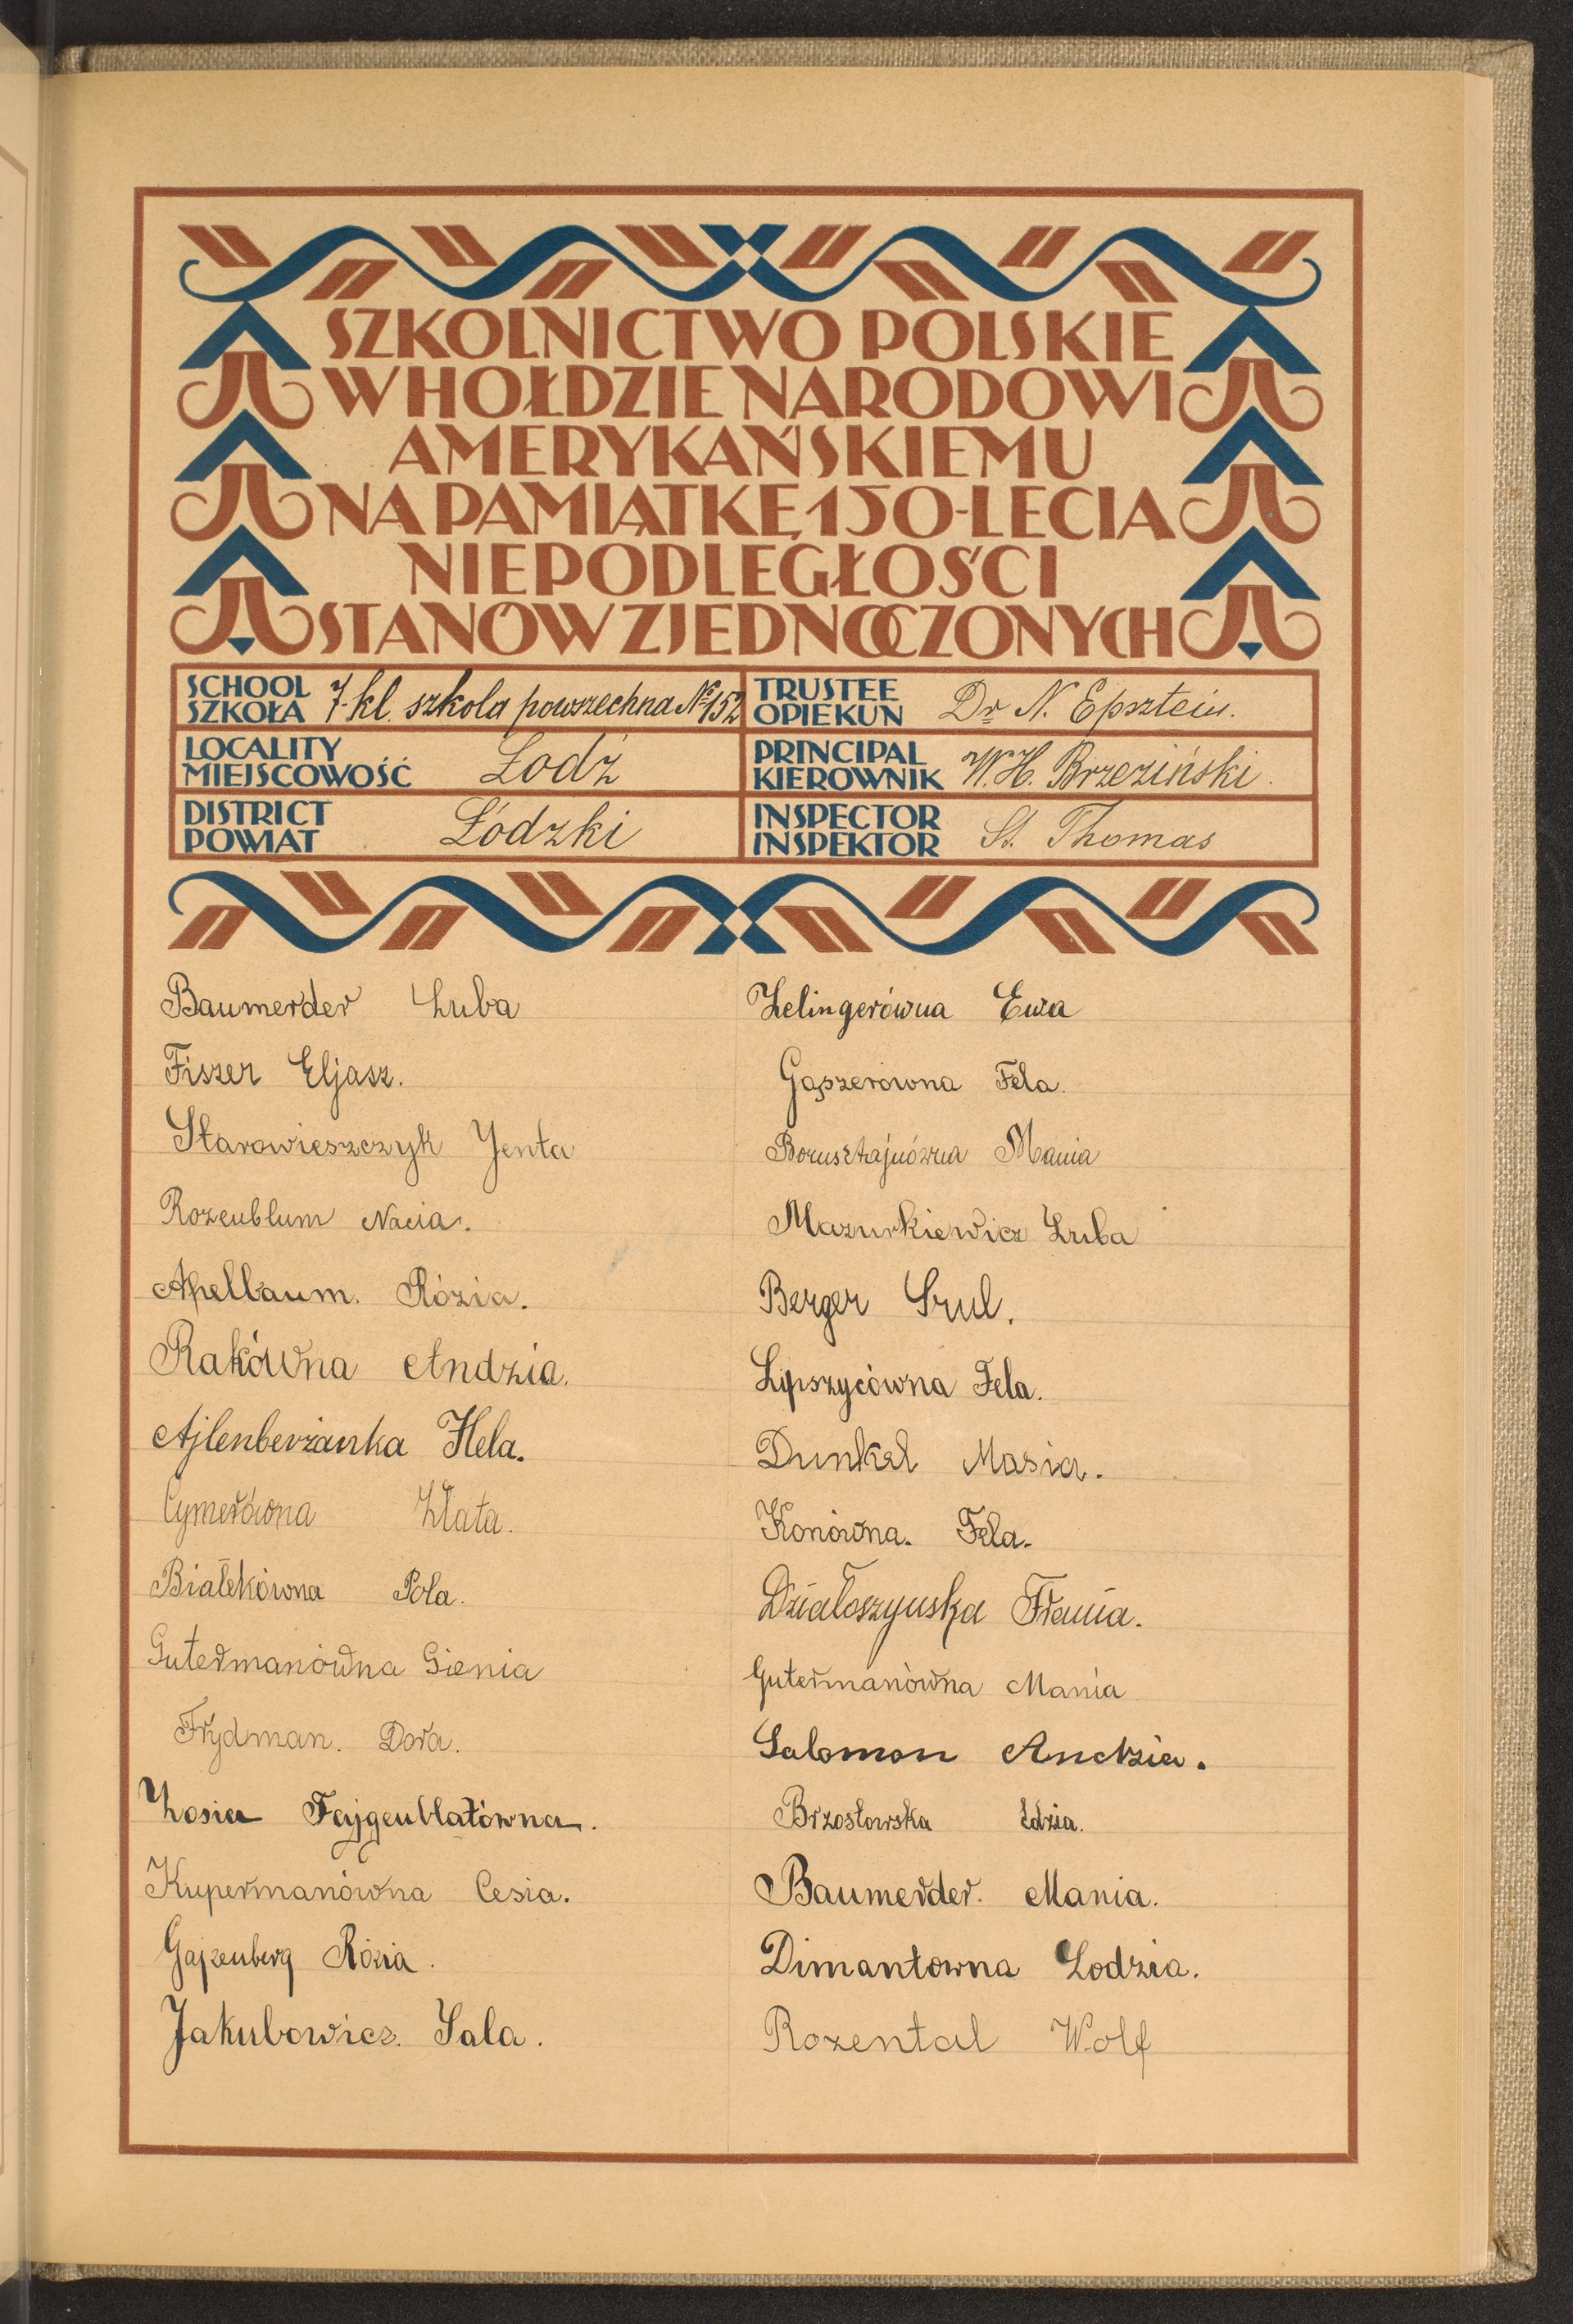 SZKOLNICTWO POLSKIE
W HOŁDZIE NARODOWI
AMERYKAŃSKIEMU
NA PAMIĄTKĘ 150-LECIA
NIEPODLEGŁOŚCI
STANÓW ZJEDNOCZONYCH
SCHOOL
SZKOŁA 7-kl. szkola powszechna № 152
TRUSTEE
OPIEKUN Dr N. Epsztein.
LOCALITY
MIEJSCOWOŚĆ Łodź
PRINCIPAL
KIEROWNIK W. H. Brzeziński.
DISTRICT
POWIAT Łódzki
INSPECTOR
INSPEKTOR St. Thomas
Baumerder Luba
Fiszer Eljasz.
Starowieszczyk Jenta
Rozenblum Nacia.
Apelbaum. Rózia.
Rakówna Andzia.
Ajlenberżanka Hela.
Cymerówna Złata.
Białekówna Pola.
Gutermanówna Gienia
Frydman. Dora.
Zosia Fajgenblatówna.
Kupermanówna Cesia.
Gajzenberg Rózia.
Jakubowicz. Sala.
Zelingerówna Ewa
Gąszerowna Fela.
Bornsztajnówna Mania
Mazurkiewicz Luba
Berger Srul.
Lipszycówna Fela.
Dunkel Masia.
Konówna. Fela.
Działoszynska Frania.
Gutermanówna Mania
Salomon Andzia.
Brzosłowska Edzia.
Baumerder. Mania.
Dimantowna Lodzia.
Rozental Wolf